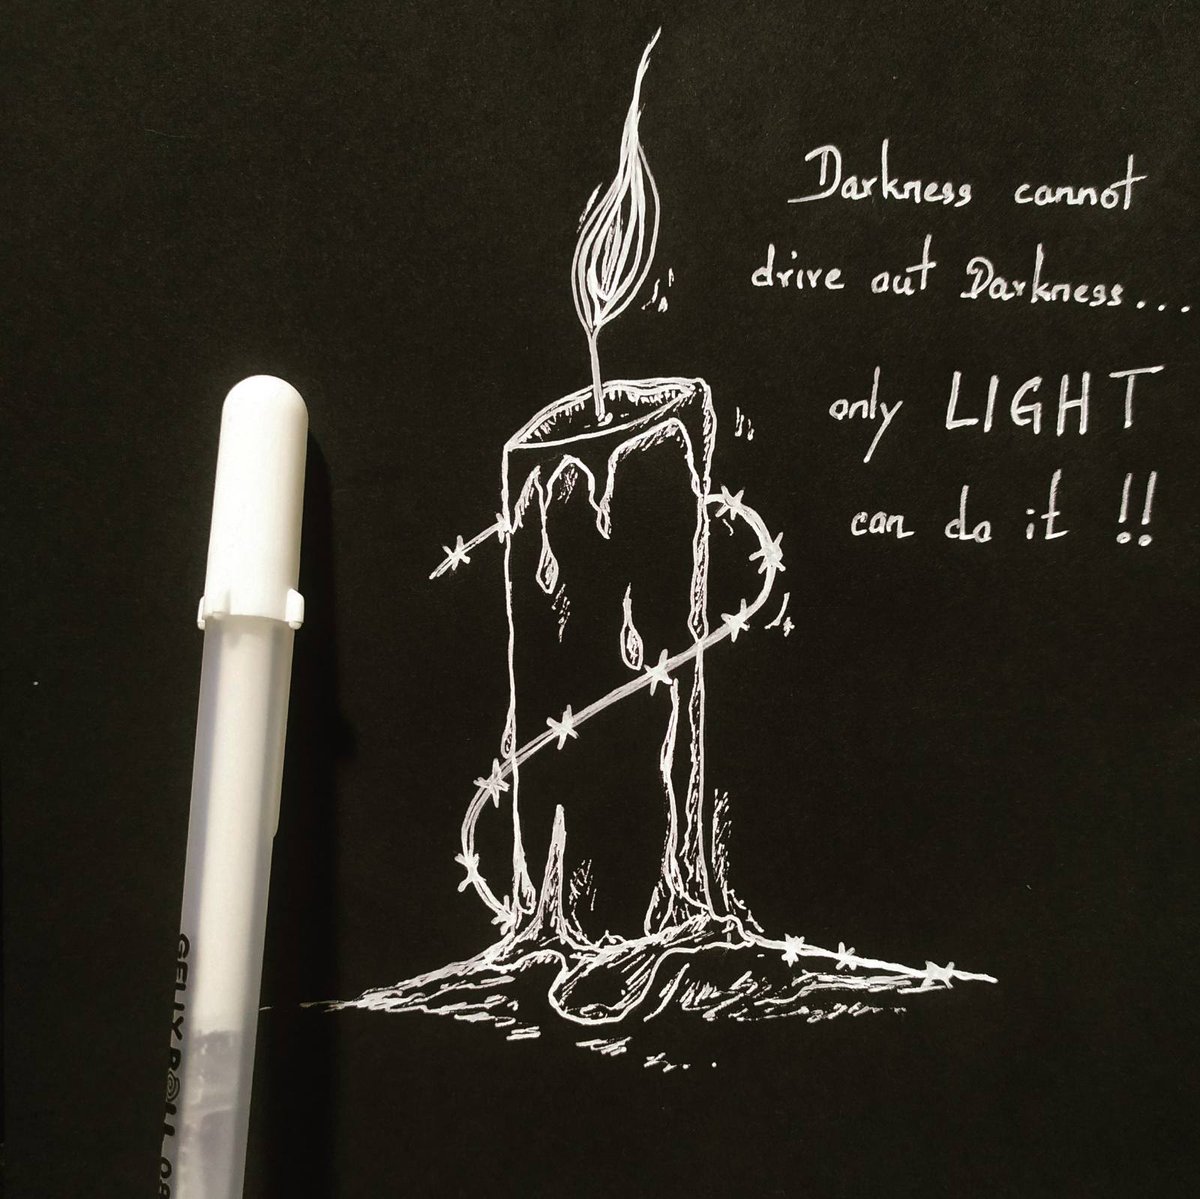 Darkness cannot
drive out Darkness...
only LIGHT
can do it !!
GELLY ROLL 08